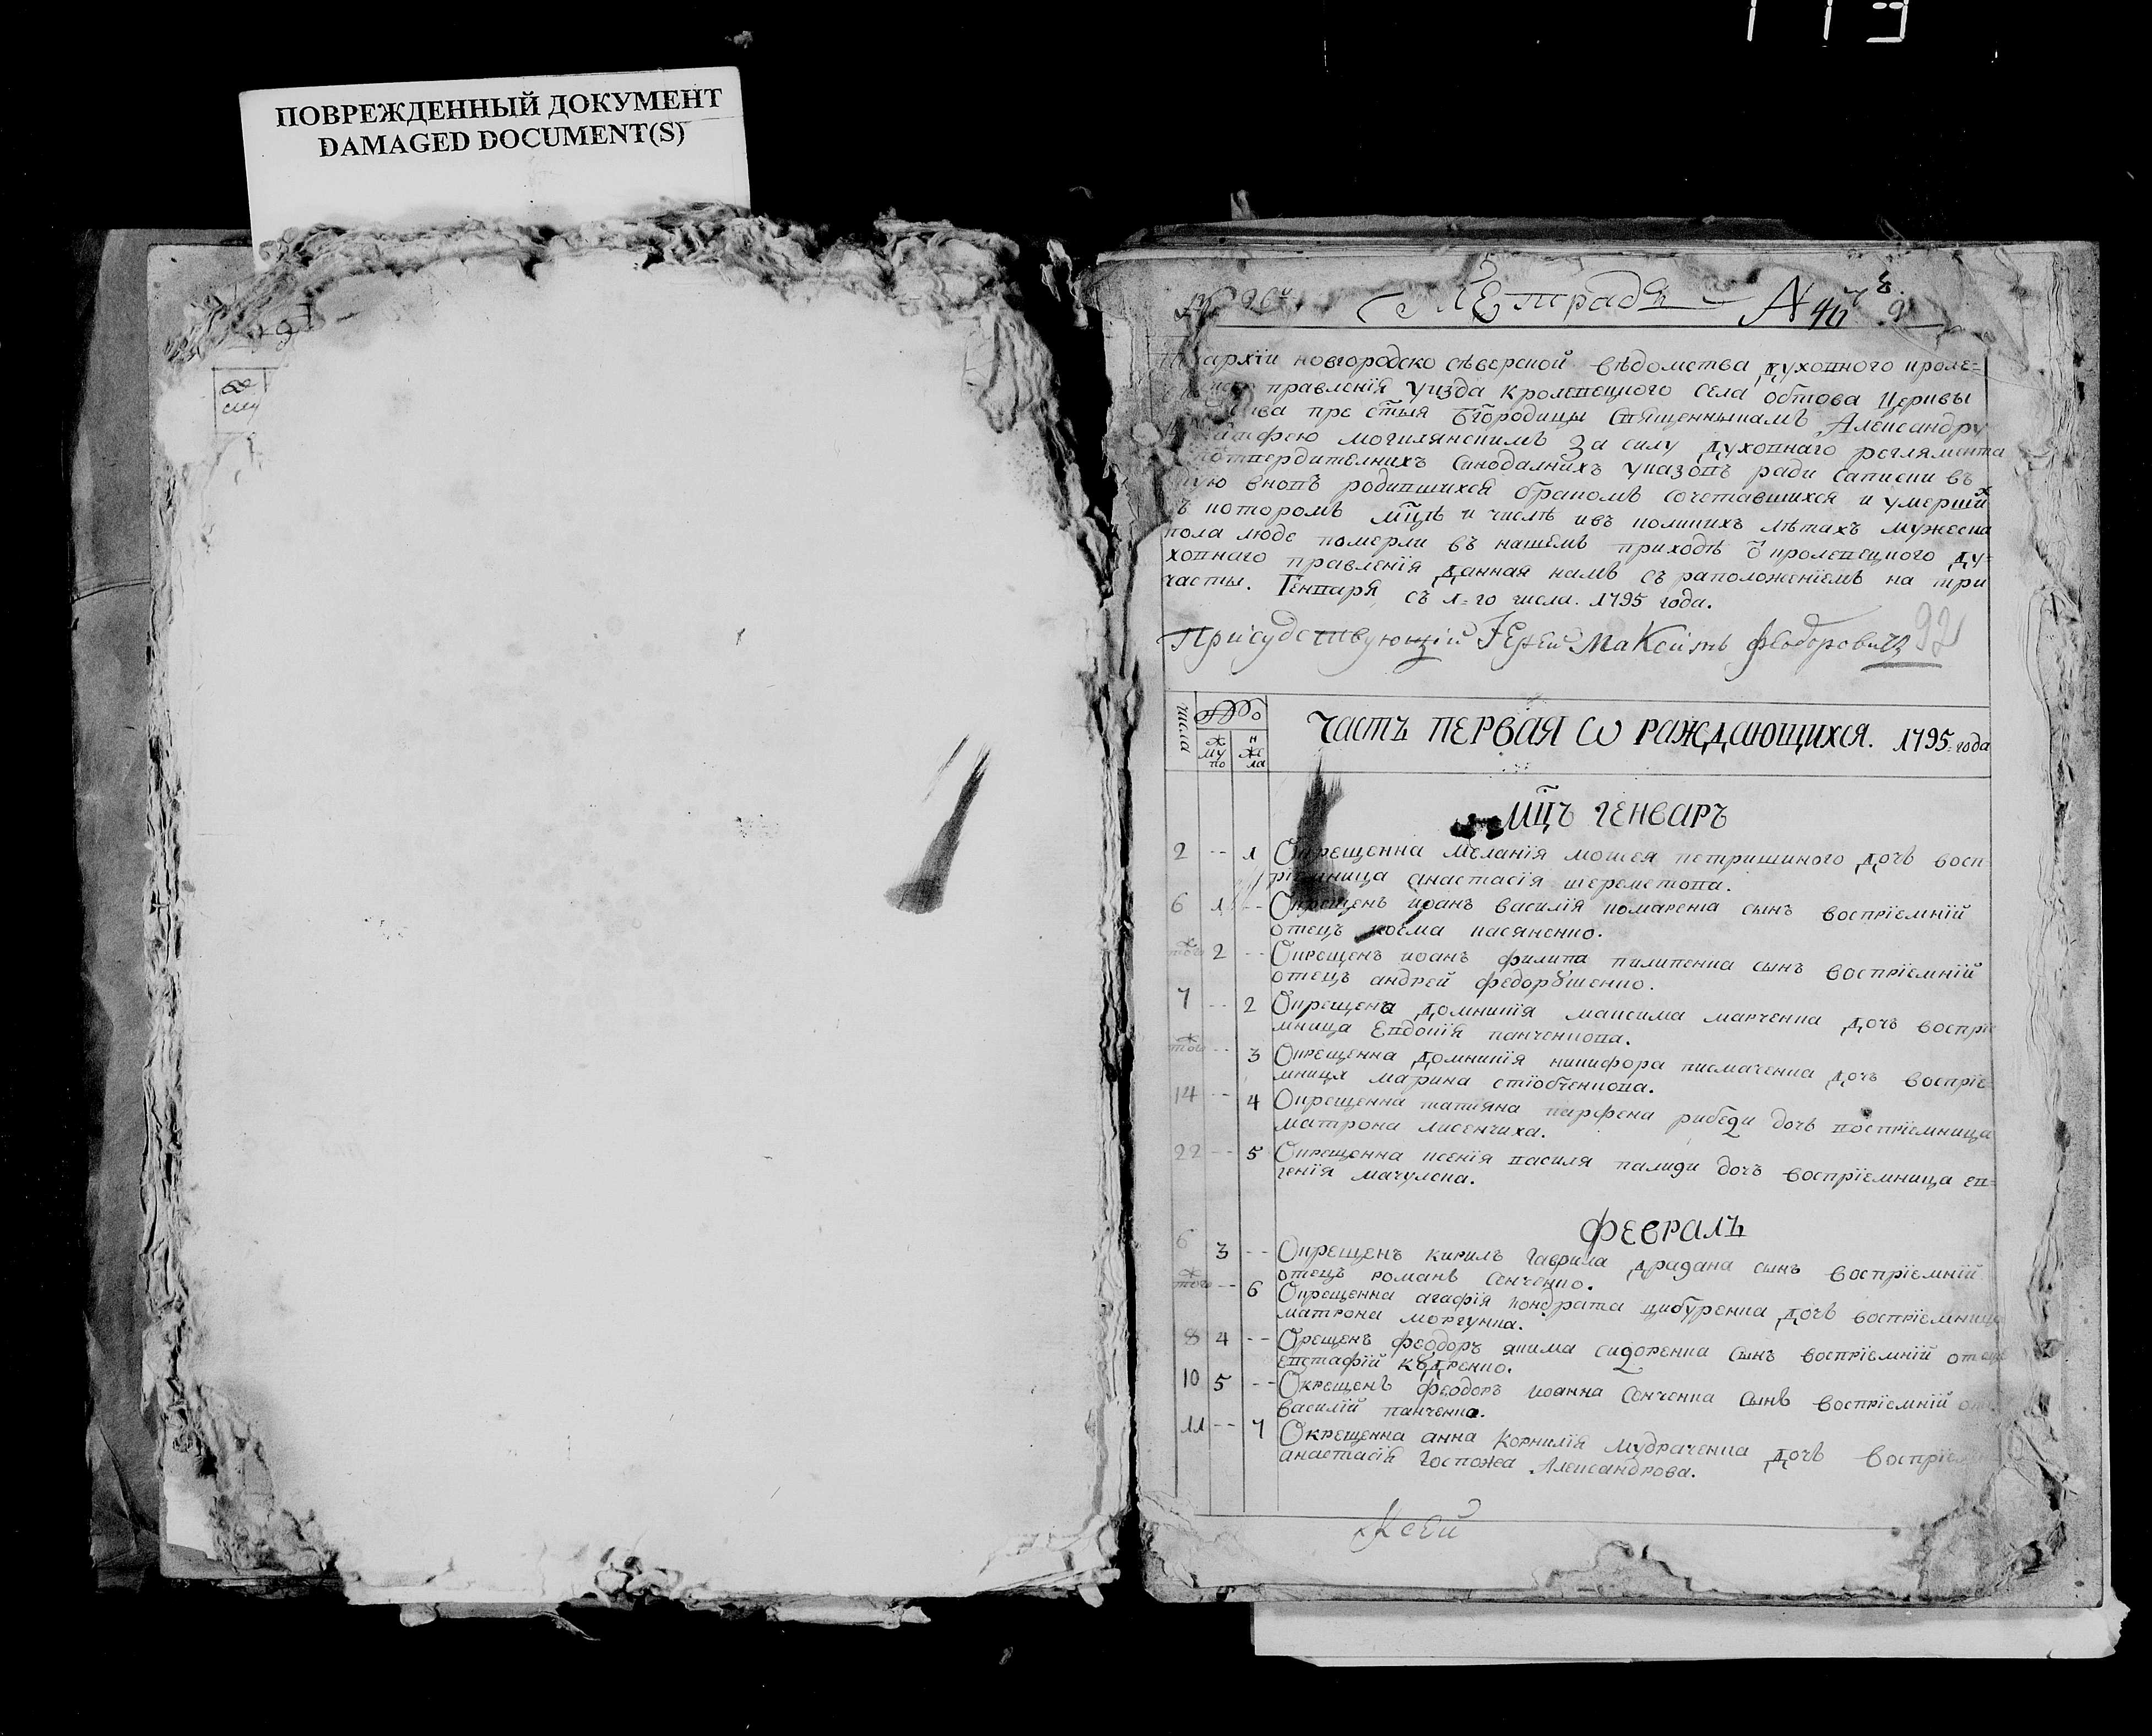 ПОВРЕЖДЕННЫЙ ДОКУМЕНТ
DAMAGED DOCUMENT(S)
Тетрадь
архїи новгородско сѣверской вѣдомства духовного кроле=
правленїя уизда кролевецкого села обтова церкви
пре ст҃ыя бг҃ородицы священныкамъ Александру
могилянскимъ за силу духовнаго реглямента
потвердителнихъ синодалнихъ указовъ ради записки въ
вновъ родившихся бракомъ сочетавшихся и умерши
въ котромъ мц҃ѣ и числѣ ивъ коликихъ лѣтахъ мужеска
пола люде померли въ нашемъ приходѣ ѿ кролевецкого ду=
ховнаго правленїя данная намъ съ раположенїемъ на три
часты. Генваря съ 1=го числа. 1795 года.
Присудствующїй Іерей Максимъ Феодоровичъ
92
числа
муж по
жен ла
ЧАСТЬ ПЕРВАЯ Ѡ РАЖДАЮЩИХСЯ. 1795 года
МЦ҃Ъ ГЕНВАРЪ
2 -- 1 Окрещенна меланїя мойсея петришиного дочь восп=
рїемница анастасїя шереметова.
6 1 -- Окрещенъ иоанъ василїя комаренка сынъ воспрїемнїй
отецъ косма касяненко.
тогож 2 -- Окрещенъ иоанъ филипа пилипенка сынъ воспрїемнїй
отецъ андрей федорꙋшенко.
7 -- 2 Окрещена домникїя максима марченка дочь воспрїе
мница Евдокїя панченкова.
тогож -- 3 Окрещенна домникїя никифора писмаченка дочь воспрїе=
мница марина
14 -- 4 Окрещенна татїяна парфена рибеди дочь воспрїемница
матрона лисенчиха.
22 -- 5 Окрещенна ксенїя василя палиди дочъ воспрїемница ев=
генїя мачулска.
ФЕВРАЛЪ
6 3 -- Окрещенъ кирилъ гаврила дридана сынъ воспрїемнїй
отецъ романъ сенченко.
тогож -- 6 Окрещенна агафїя кондрата цибуренка дочь воспрїемница
матрона моргунка.
8 4 -- Орещенъ феодоръ якима сидоренка сынъ воспрїемнїй отецъ
евстафїй кꙋдренко.
10 5 -- Окрещенъ феодоръ иоанна сенченка сынъ воспрїемнїй
василїй панченко.
11 -- 7 Окрещенна анна корнилїя мудраченка дочь воспрїем
анастасїя госпожа Александрова.